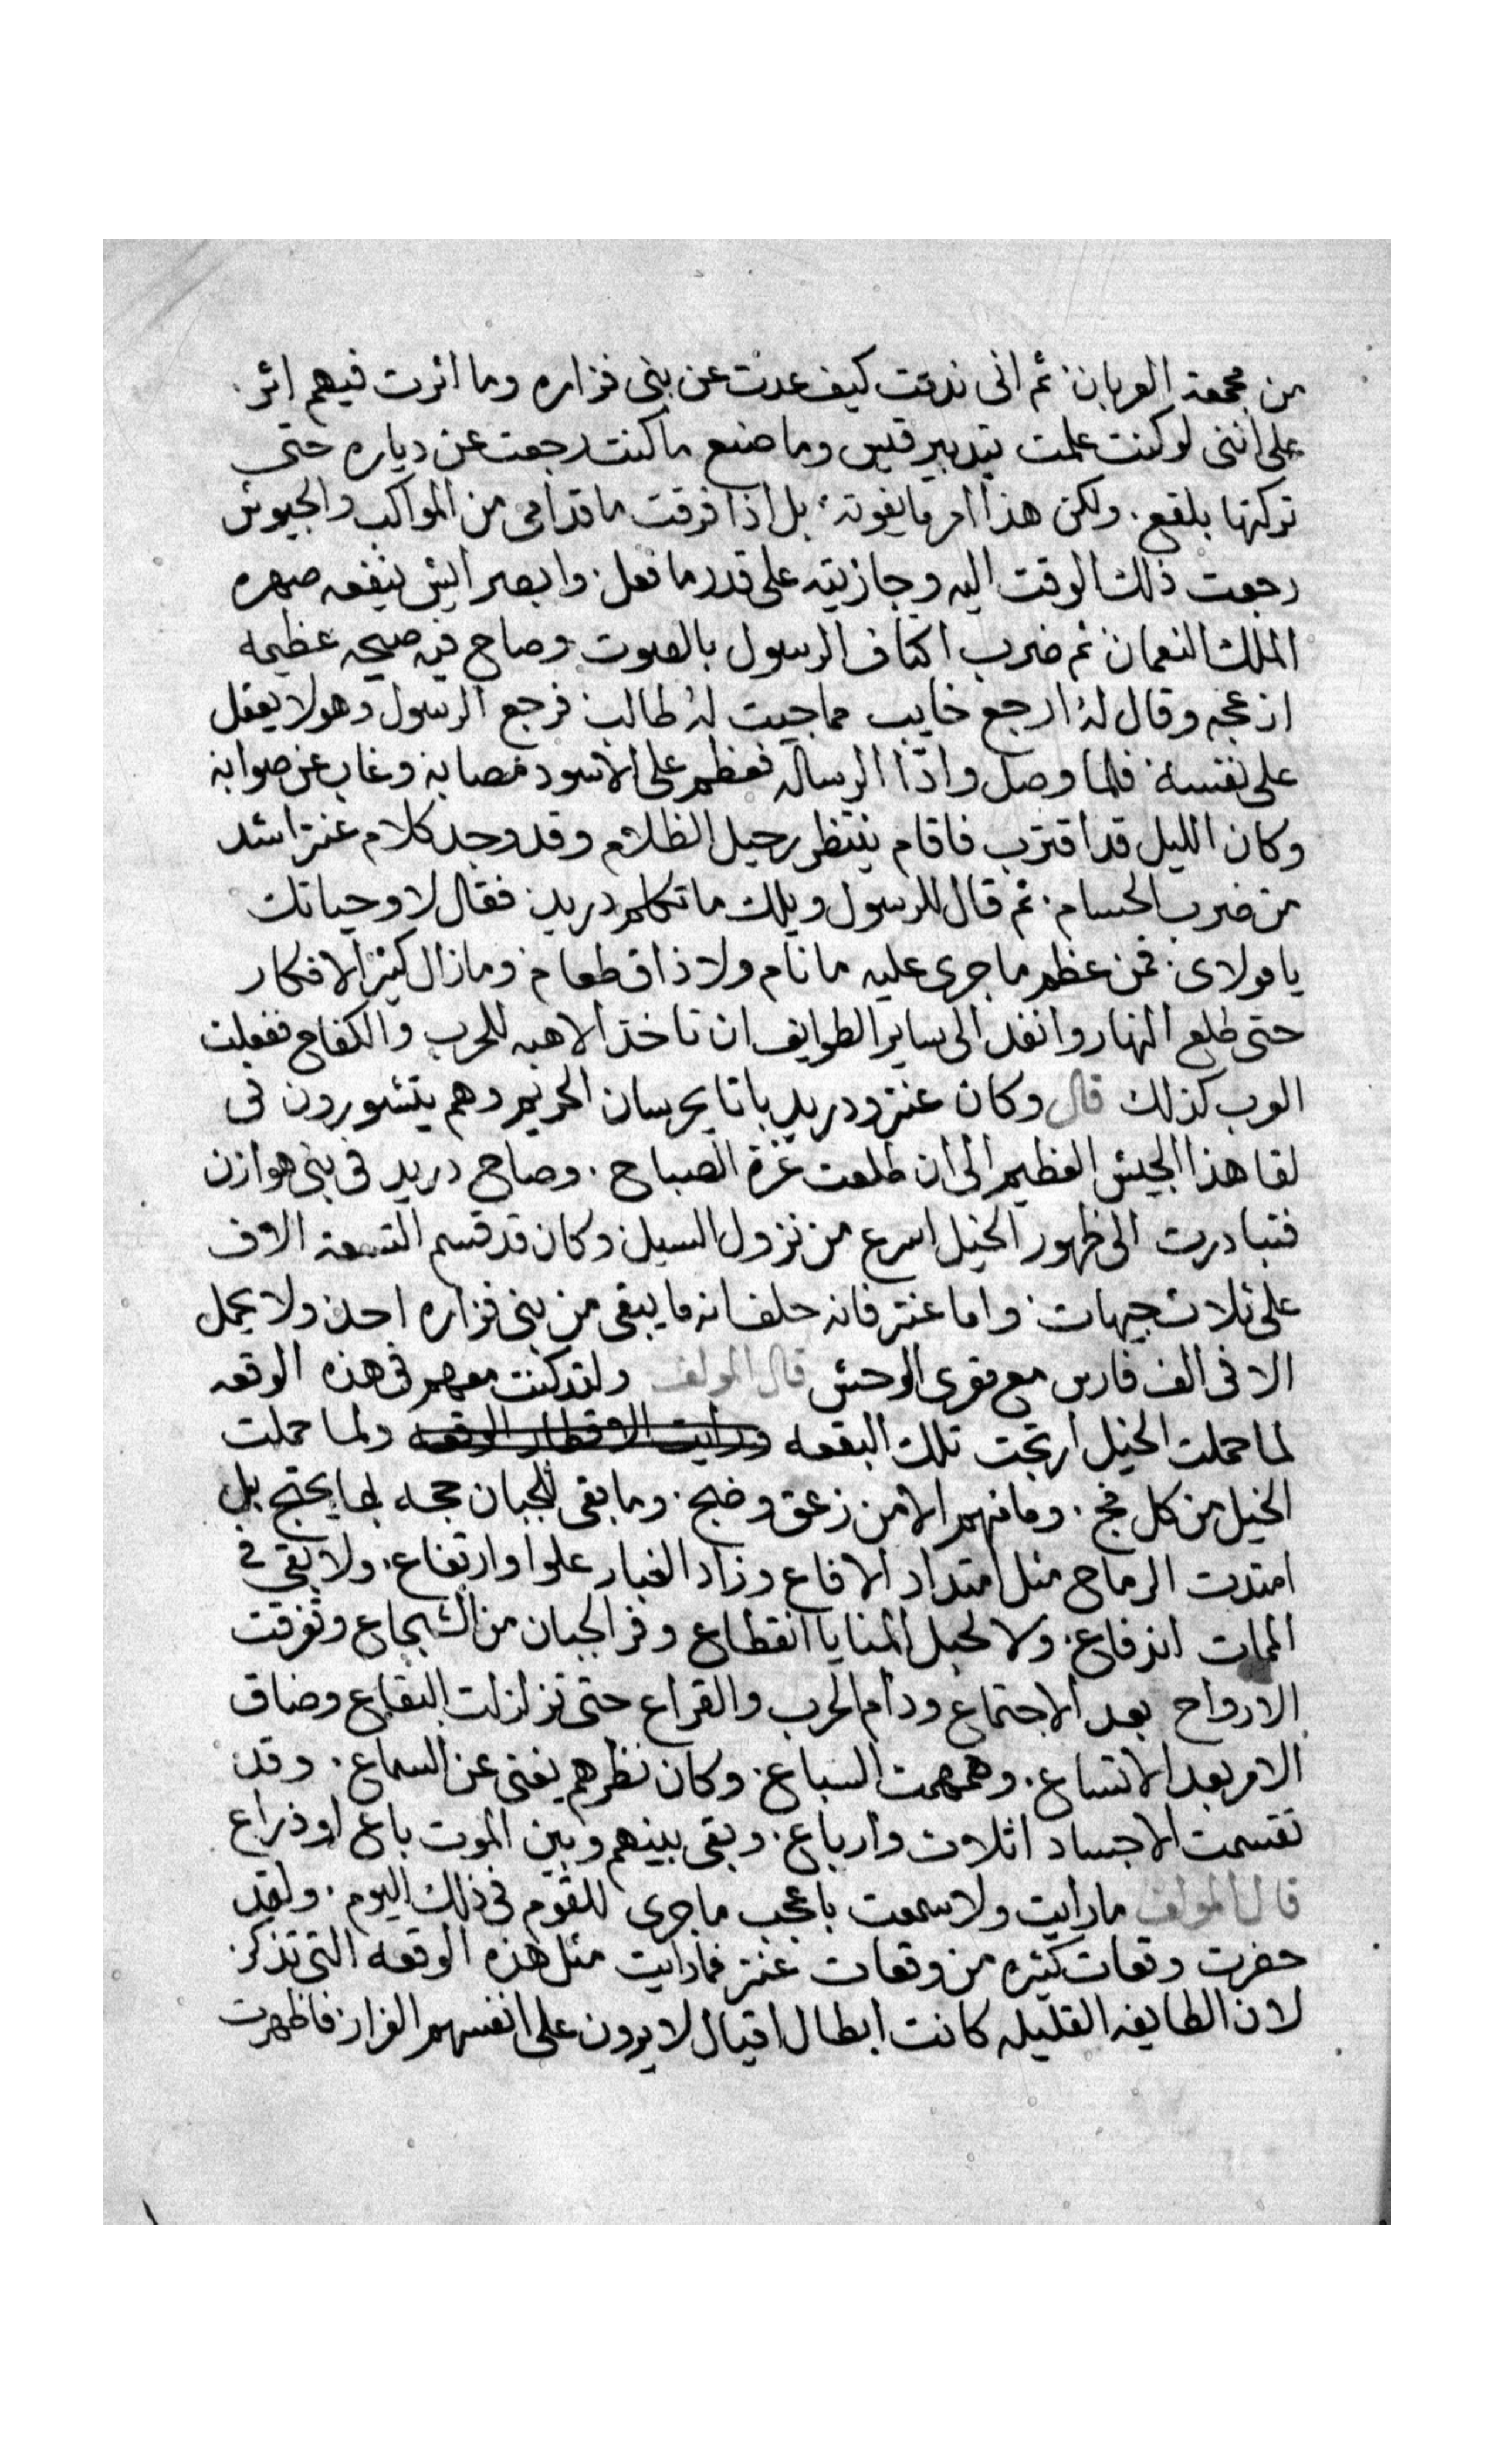 من مجمعة العربان ثم انى ندمت كيف عدت عن بنى فزاره وما اثرت فيهم اثر
على اننى لو كنت علمت بتدبير قيس وما صنع ما كنت رجعت عن دياره حتى
تركتها بلقع ولكن هذا امر ما يفوته بل اذا فرقت ما قدامى من المواكب والجيوش
رجعت ذلك الوقت اليه وجازيته على قدر ما فعل وابصر ايش ينفعه صهره
الملك النعمان ثم ضرب اكتاف الرسول بالصوت وصاح فيه صيحه عظيمه
ازعجه وقال له ارجع خايب مما جيت له طالب فرجع الرسول وهو لا يعقل
على نفسه فلما وصل وادّا الرساله فعظم على الاسود مصابه وغاب عن صوابه
وكان الليل قد اقترب فاقام ينتظر رحيل الظلام وقد وجد كلام عنتر اشد
من ضرب الحسام ثم قال للرسول ويلك ما تكلم دريد فقال لا وحياتك
يا مولاى فمن عظم ما جرى عليه ما نام ولا ذاق طعام وما زال كثير الافكار
حتى طلع النهار وانفد الى ساير الطوايف ان تاخذ الاهبه للحرب والكفاح ففعلت
العرب كذلك قال وكان عنتر ودريد باتا يحرسان الحريم وهم يتشورون فى
لقا هذا الجيش العظيم الى ان طلعت غرة الصباح وصاح دريد فى بنى هوازن
فتبادرت الى ظهور الخيل اسرع من نزول السيل وكان قد قسم التسعة الاف
على ثلاث جيهات واما عنتر فانه حلف انه ما يبقى من بنى فزاره احد ولا يحمل
الا فى الف فارس مع مقرى الوحش قال المولف ولقد كنت معهم فى هذه الوقعه
لما حملت الخيل ارتجت تلك البقعه ورايت الاقطار الوقعه ولما حملت
الخيل من كل فج وما منهم الا من زعق وضج وما بقى للجبان حجه بها يحتج بل
امتدت الرماح مثل امتداد الافاع وزاد الغبار علوا وارتفاع ولا بقى فى
الممات اندفاع ولا لحبل المنايا انقطاع وفر الجبان من الشجاع وتفرقت
الارواح بعد الاجتماع ودام الحرب والقراع حتى تزلزلت البقاع وضاق
الامر بعد الاتساع وهمهمت السباع وكان نظرهم يغنى عن السماع وقد
تقسمت الاجساد اثلاث وارباع وبقى بينهم وبين الموت باع او ذراع
قال المولف ما رايت ولا سمعت باعجب ما جرى للقوم فى ذلك اليوم ولقد
حضرت وقعات كثيره من وقعات عنتر فما رايت مثل هذه الوقعه التى تذكر
لان الطايفه القليله كانت ابطال اقيال لا يرون على انفسهم الفرار فاظهرت